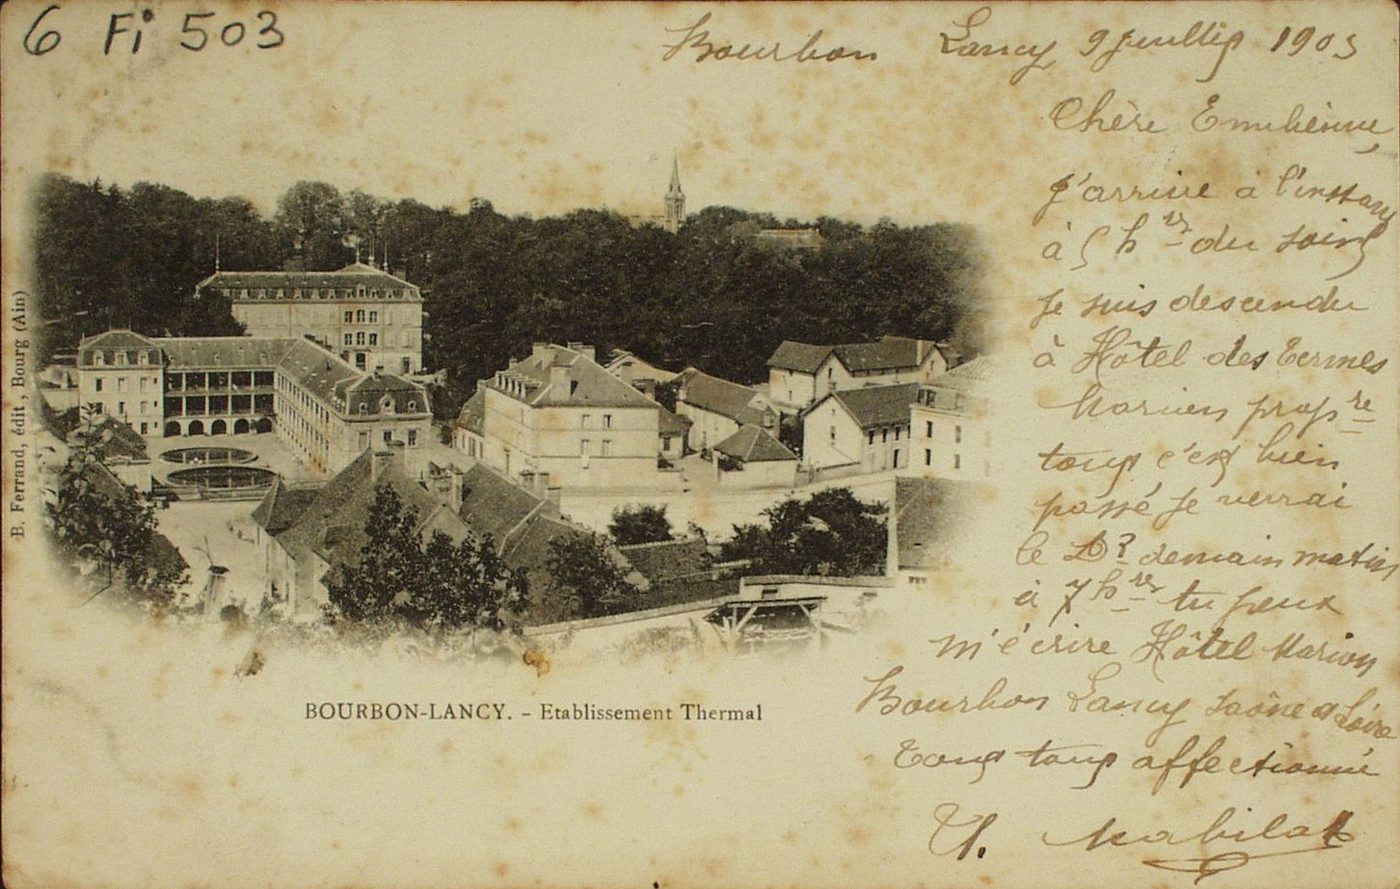 6 Fi 503
Bourbon Lancy 9 juillet 1903
Chère Emilienne,
j'arrive à l'instant
à 5 h res du soir
je suis descendu
à Hôtel des Termes
Marion prop re
tout c'est bien
passé je verrai
le D r demain matin
à 7 h res tu peux
m'écrire Hôtel Marion
Bourbon Lancy Saône et Loire
Ton tout affectionné
Mabilat
B. Ferrand, édit., Bourg (Ain)
BOURBON-LANCY. - Etablissement Thermal